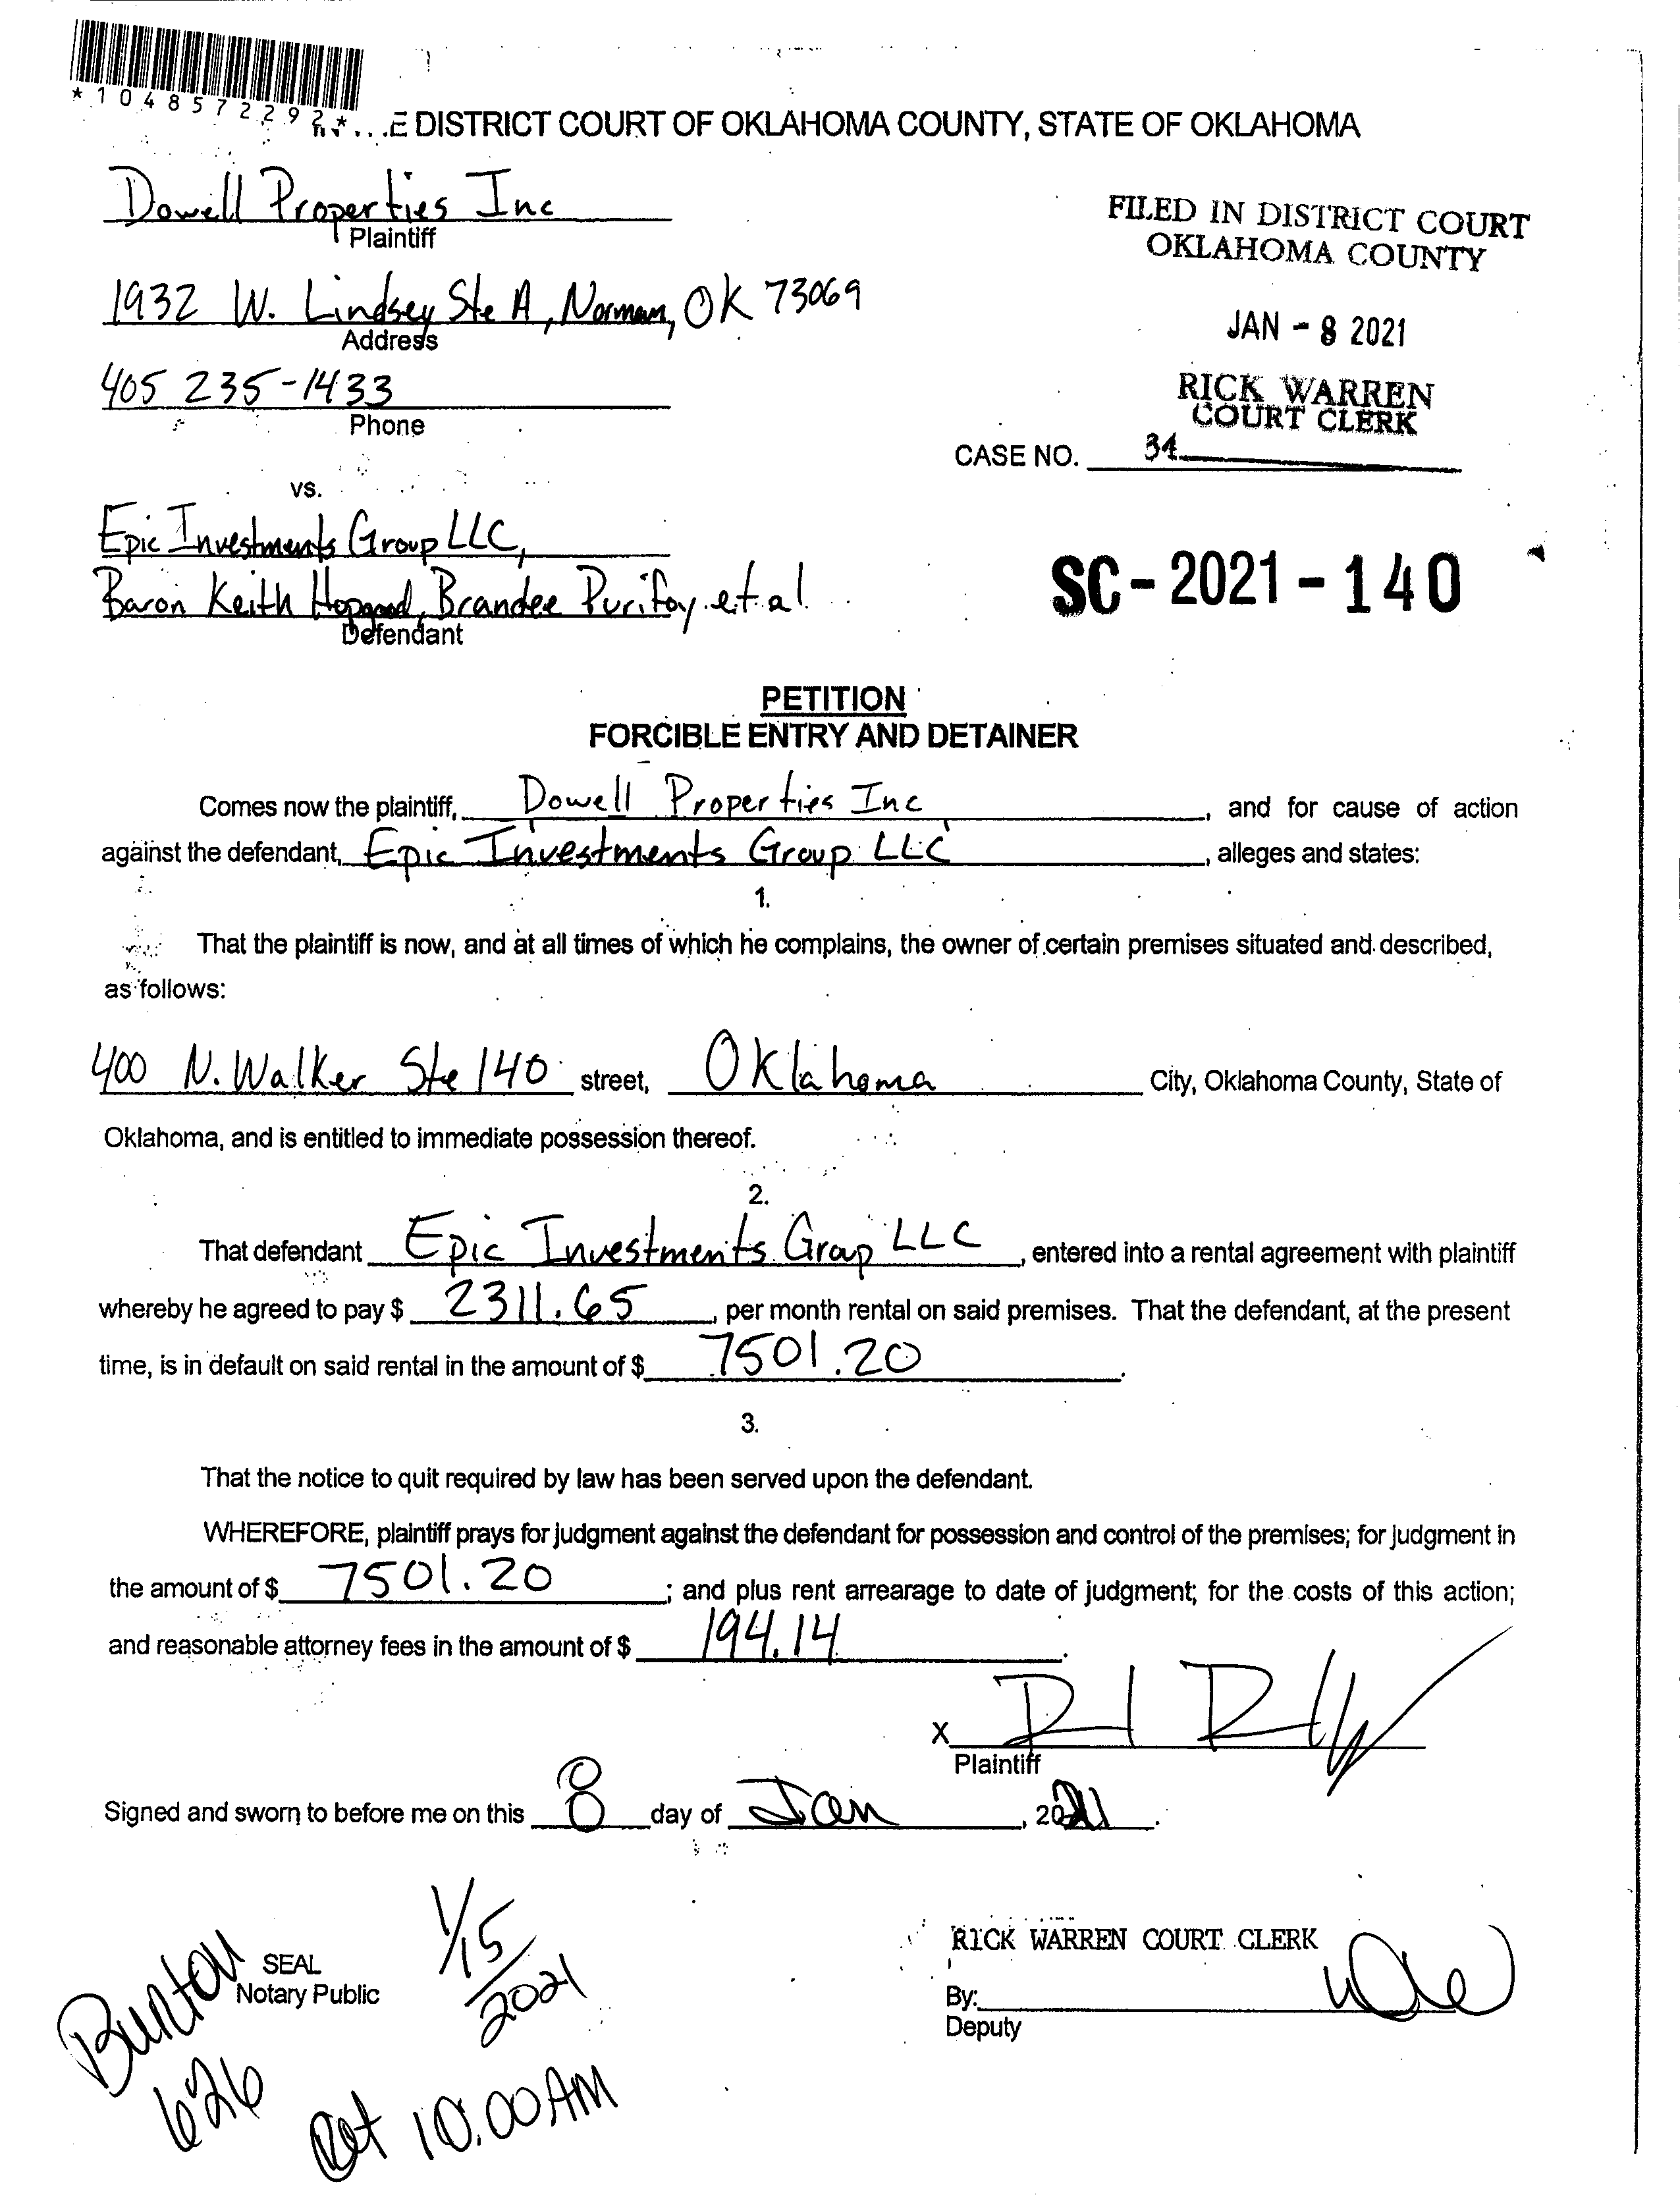 *1048572292*
E DISTRICT COURT OF OKLAHOMA COUNTY, STATE OF OKLAHOMA
Dowell Properties Inc
Plaintiff
FILED IN DISTRICT COURT
OKLAHOMA COUNTY
1932 W. Lindsey Ste A, Norman, OK 73069
Address
JAN - 8 2021
405 235-1433
Phone
RICK WARREN
COURT CLERK
CASE NO. 34
vs.
Epic Investments Group LLC,
Baron Keith Hopgood, Brandee Purifoy et al
Defendant
SC - 2021 - 140
PETITION
FORCIBLE ENTRY AND DETAINER
Comes now the plaintiff, Dowell Properties Inc, and for cause of action
against the defendant, Epic Investments Group LLC, alleges and states:
1.
That the plaintiff is now, and at all times of which he complains, the owner of certain premises situated and described,
as follows:
400 N. Walker Ste 140 street, Oklahoma City, Oklahoma County, State of
Oklahoma, and is entitled to immediate possession thereof.
2.
That defendant Epic Investments Group LLC, entered into a rental agreement with plaintiff
whereby he agreed to pay $ 2311.65, per month rental on said premises. That the defendant, at the present
time, is in default on said rental in the amount of $ 7501.20.
3.
That the notice to quit required by law has been served upon the defendant.
WHEREFORE, plaintiff prays for judgment against the defendant for possession and control of the premises; for judgment in
the amount of $ 7501.20; and plus rent arrearage to date of judgment; for the costs of this action;
and reasonable attorney fees in the amount of $ 194.14.
X
Plaintiff
Signed and sworn to before me on this 8 day of Jan, 2021.
SEAL
Notary Public
Burton
626
1/15/2021
at 10:00 AM
RICK WARREN COURT CLERK
By:
Deputy